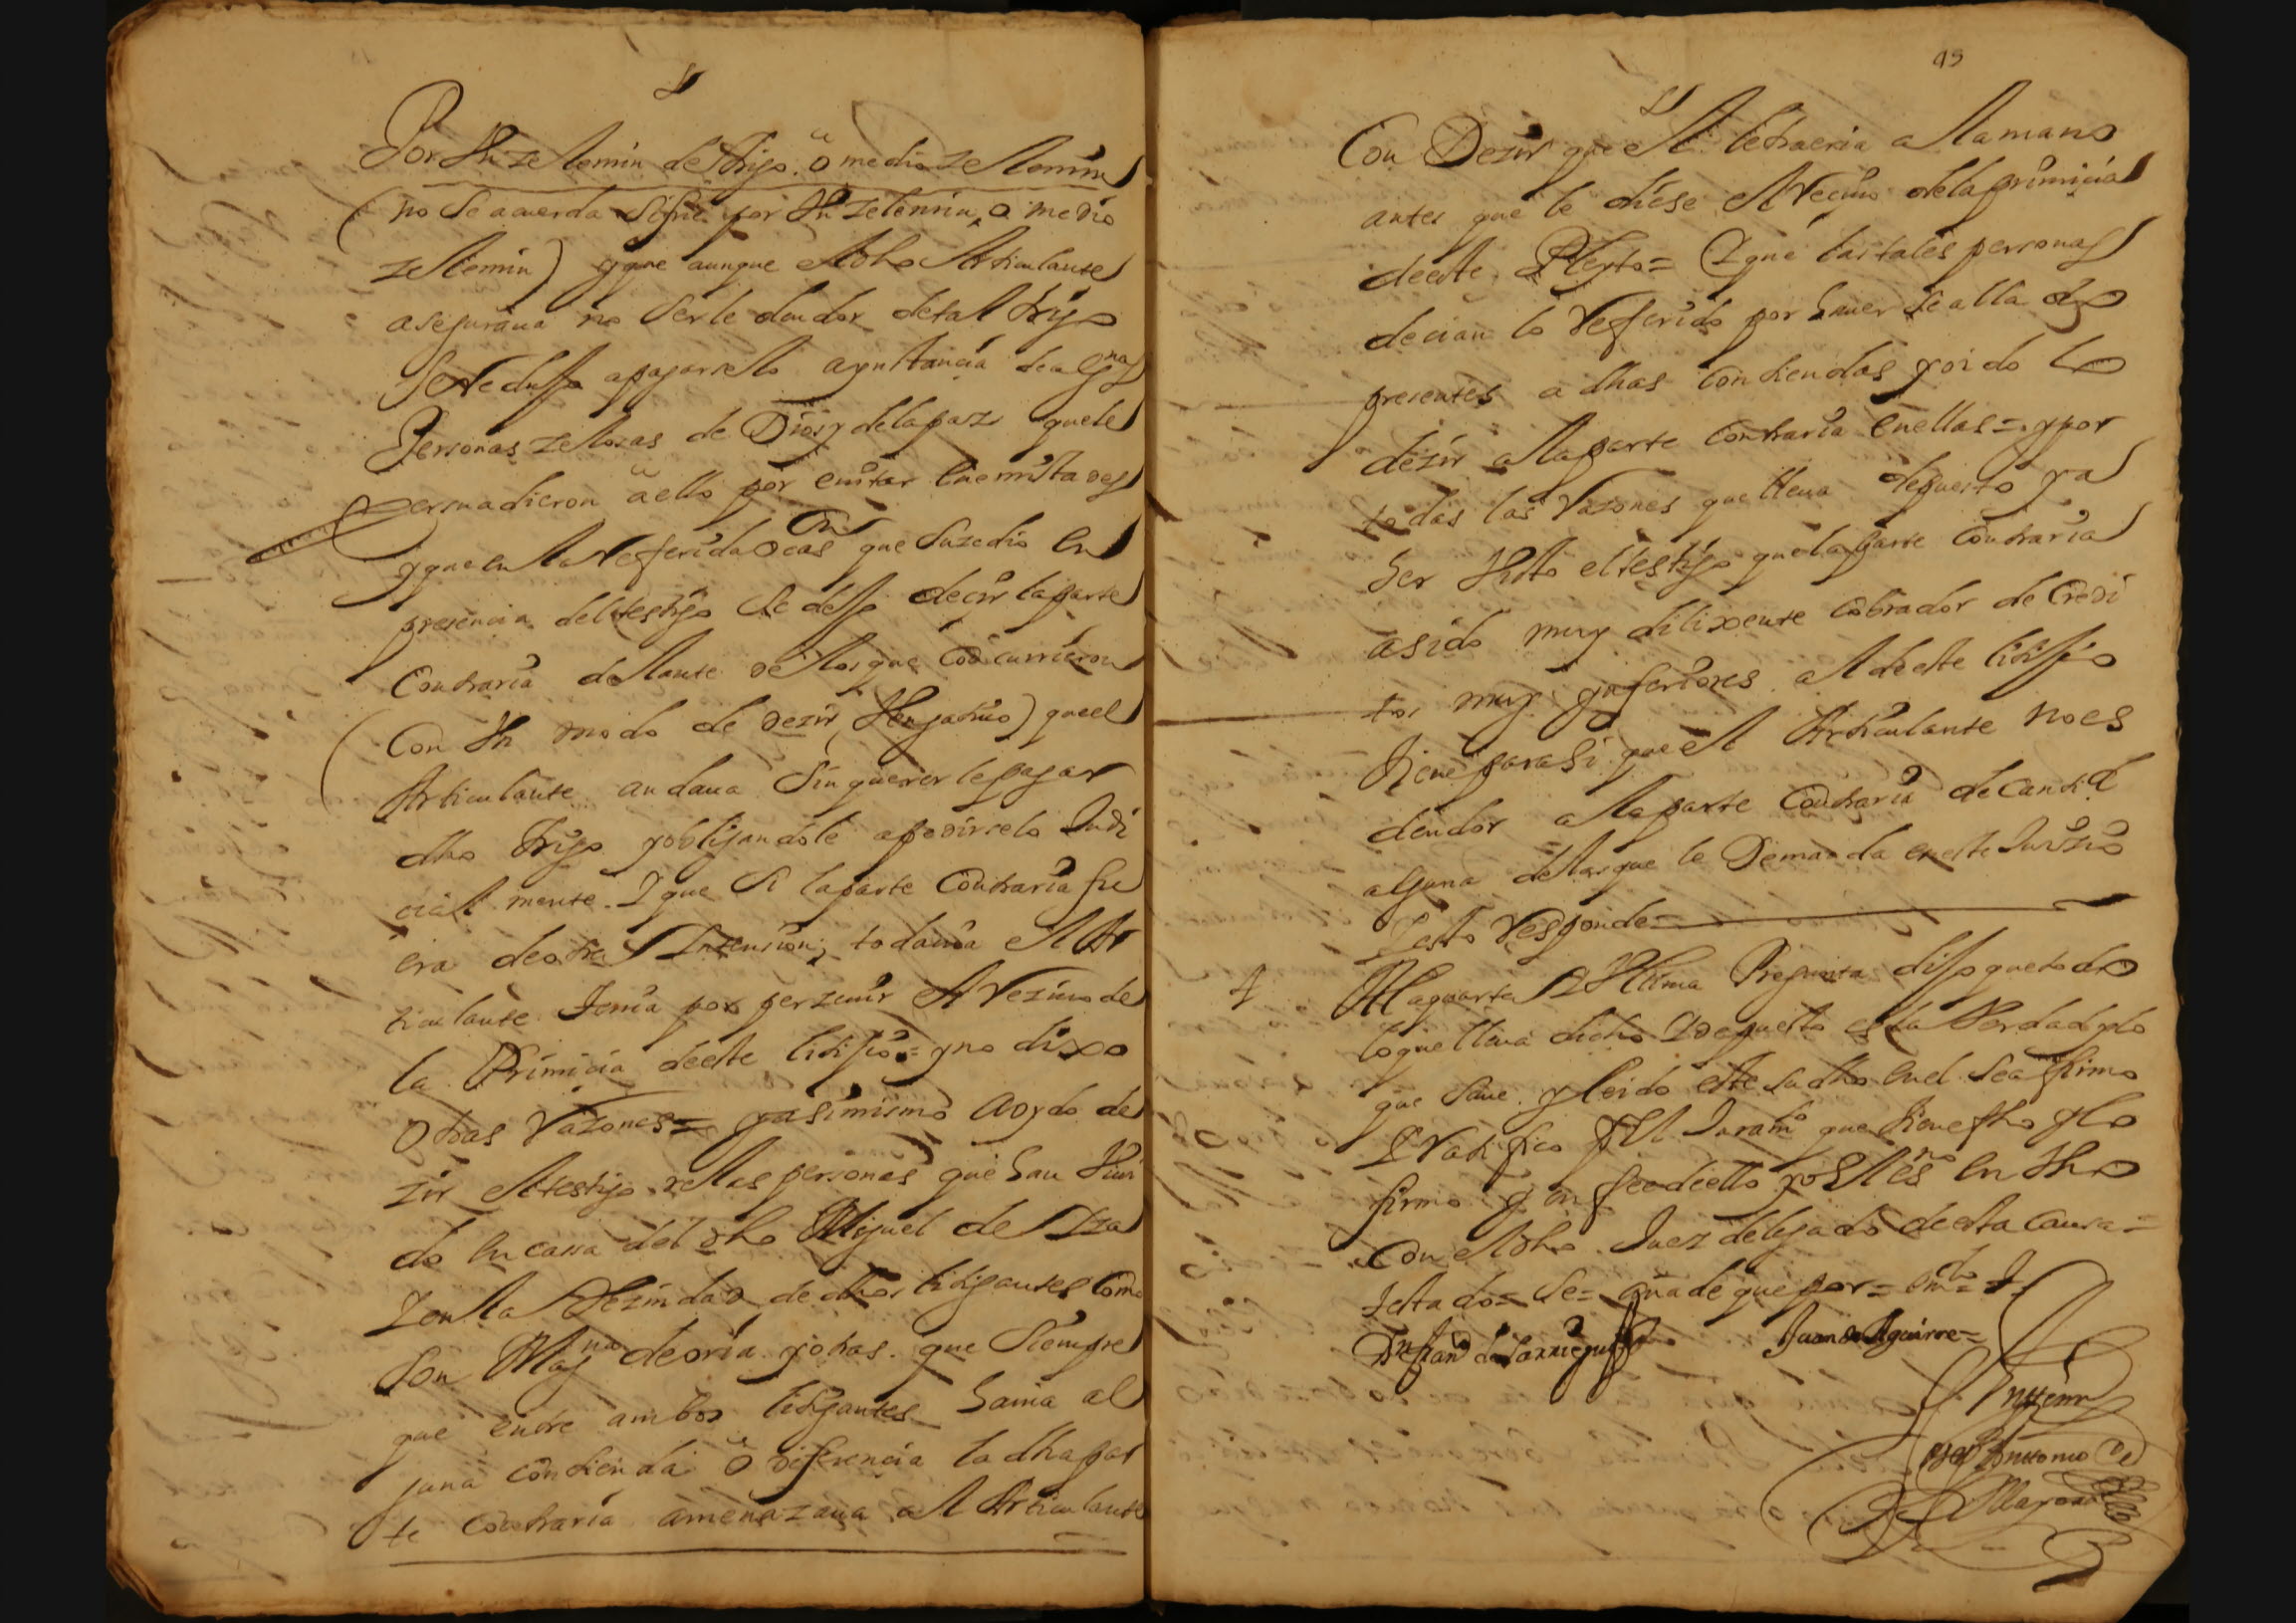 Por Vn zelemin de trigo. o medio zelemin
(no se acuerda si fue por Vn zelemin, o medio
zelemin) y que aunque el dho Articulante
aseguraua no serle deudor de tal trigo
Se redujo a pagarselo a ynstancia de algnas
Personas zelosas de Dios y de la paz que le
persuadieron a ello por euitar enemistades
y que en la refferida ocasn que suzedio en
presencia del testigo se dejo decir la parte
Contraria delante de los que concurrieron
(Con Vn modo de dezir Vengatiuo) que el
Articulante andaua sin querer le pagar
dho trigo y obligandole a pedirselo Judi
cial mente. Y que si la parte Contraria fu
era de otra Intencion, todauia el Ar
ticulante Tenia por perzeuir el Vezino de
la Primicia de este litijio = y no dixo
Otras razones = y asimismo a oydo de
zir el testigo a las personas que han Viui
do en cassa del dho Miguel de Yza
Y en la Vezindad de dhos litigantes como
Son Magna de oria y otras. que siempre
que entre ambos litigantes hauia al
guna contienda o diferencia la dha par
te contraria amenazaua al Articulante
49
Con Dezir que el le traeria a la mano
antes que le diese el Recibo de la primicia
de este Pleyto = Y que las tales personas
decian lo refferido por hauerse allado
presentes a dhas contiendas y oido lo
dezir a la parte contraria en ellas = y por
todas las razones que lleua depuesto ya
ser Visto el testigo que la parte contraria
a sido muy dilixente cobrador de Credi
tos muy ynferiores al de este litijio
Tiene para si que el Articulante no es
deudor a la parte contraria de Cantid
alguna de las que le Demanda en este Juizio
Y esto responde =
4 A la quarta Y Vltima Pregunta dijo que todo
lo que lleua dicho Y depuesto es la Verdad y lo
que saue. y leido este su dho en el se affirmo
Y ratifico so el Juramto que tiene fho y lo
firmo y en fee de ello yo el esno en Vno
Con el dho Juez delegado de esta Causa =
testado = se = añade que por = emdo = Y
Juan de Aguirre =
Antemi
Antonio de